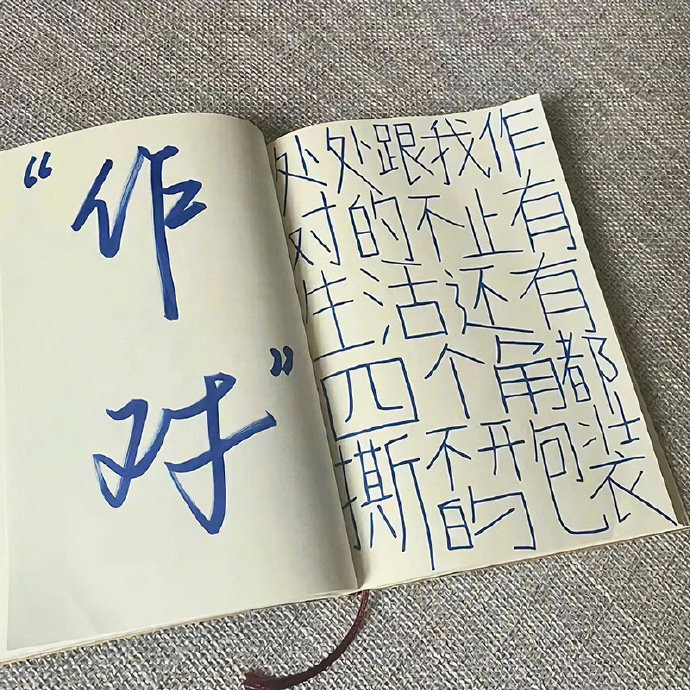 “作
对”
处处跟我作
对的不止有
生活还有
四个角都
撕不开包装
的